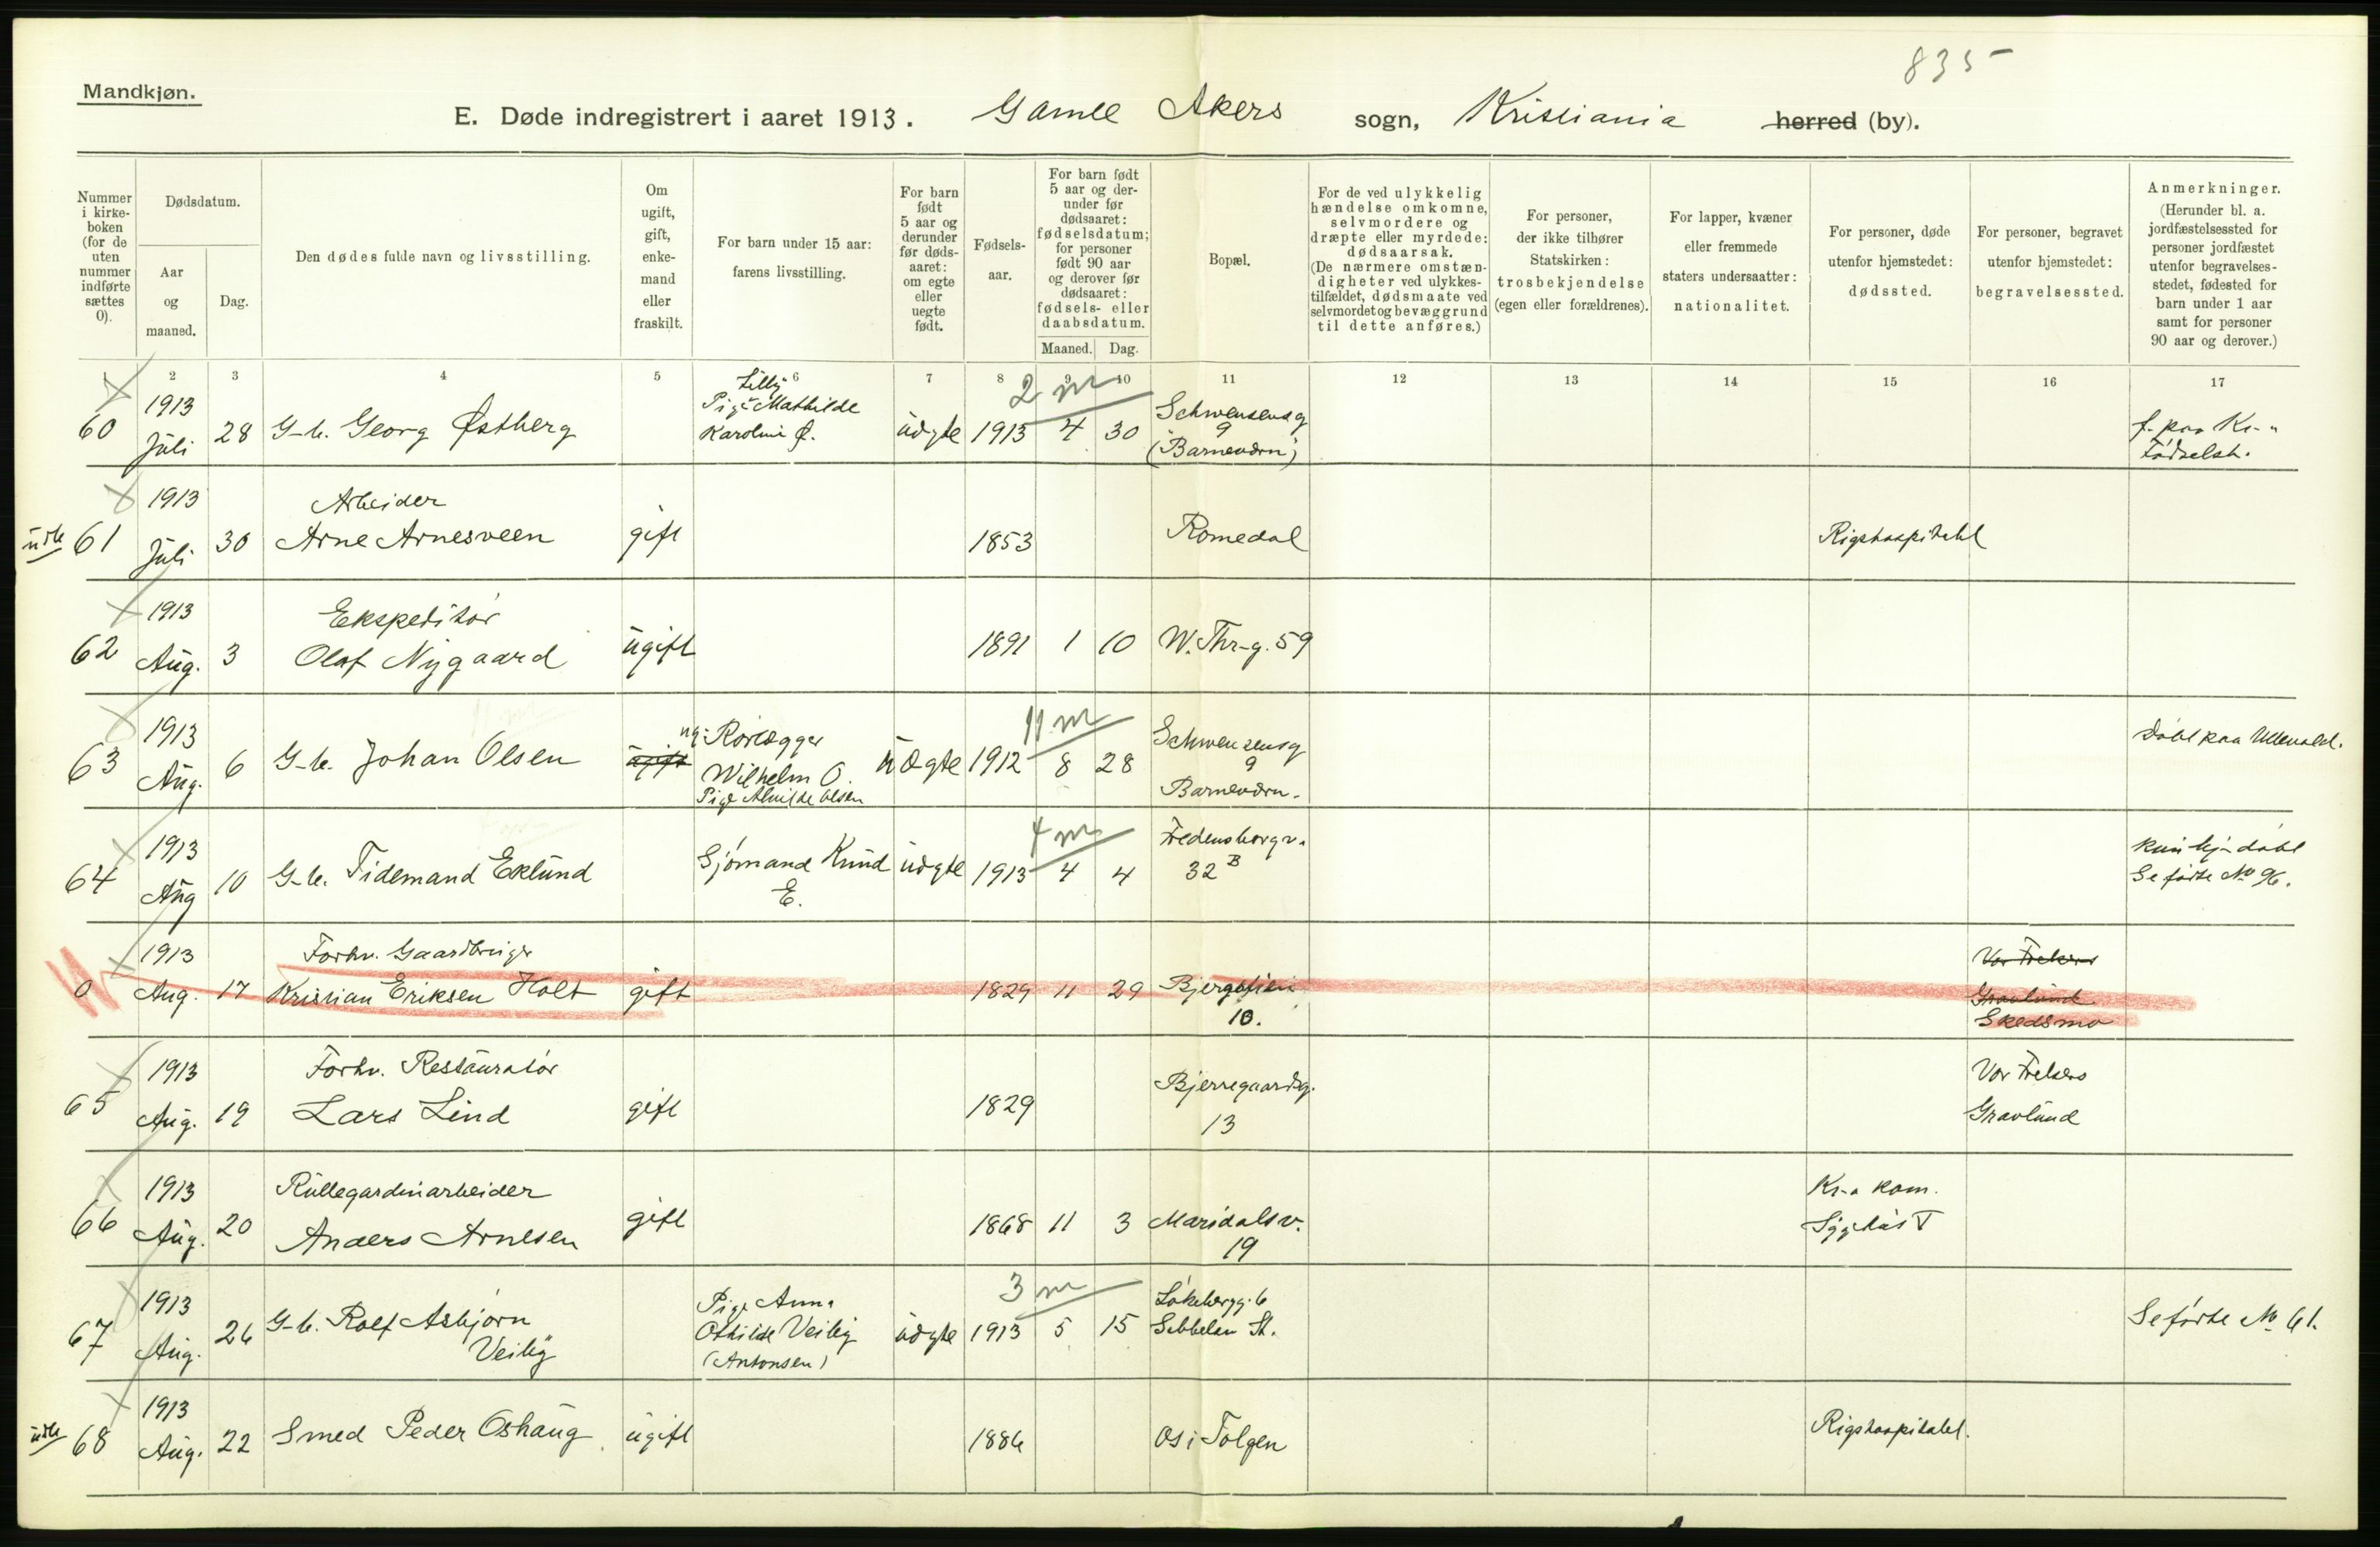 835
Mandkjøn.
E. Døde indregistrert i aaret 1913. Gamle Akers sogn, Kristiania herred (by).
Nummer
i kirke-
boken
(for de
uten
nummer
indførte
sættes
0).
Dødsdatum.
Aar
og
maaned.
Dag.
Den dødes fulde navn og livsstilling.
Om
ugift,
gift,
enke-
mand
eller
fraskilt.
For barn under 15 aar:
farens livsstilling.
For barn
født
5 aar og
derunder
før døds-
aaret:
om egte
eller
uegte
født.
Fødsels-
aar.
For barn født
5 aar og der-
under før
dødsaaret:
fødselsdatum;
for personer
født 90 aar
og derover før
dødsaaret:
fødsels- eller
daabsdatum.
Maaned. Dag.
Bopæl.
For de ved ulykkelig
hændelse omkomne,
selvmordere og
dræpte eller myrdede:
dødsaarsak.
(De nærmere omstæn-
digheter ved ulykkes-
tilfældet, dødsmaate ved
selvmordet og bevæggrund
til dette anføres.)
For personer,
der ikke tilhører
Statskirken:
trosbekjendelse
(egen eller forældrenes).
For lapper, kvæner
eller fremmede
staters undersaatter:
nationalitet.
For personer, døde
utenfor hjemstedet:
dødssted.
For personer, begravet
utenfor hjemstedet:
begravelsessted.
Anmerkninger.
(Herunder bl. a.
jordfæstelsessted for
personer jordfæstet
utenfor begravelses-
stedet, fødested for
barn under 1 aar
samt for personer
90 aar og derover.)
1 2 3 4 5 6 7 8 9 10 11 12 13 14 15 16 17
60 1913 Juli 28 G-b. Georg Østberg
Lilly
Pige Mathilde
Karoline Ø.
uægte 1913 4 30
2 m
Schwensensg
9
(Barneværn)
f. paa Kr.a
Fødselsst.
61 1913 Juli 30
Arbeider
Arne Arnesveen
gift 1853 Romedal Rigshospitalet
62 1913 Aug. 3
Ekspeditør
Olaf Nygaard
ugift 1891 1 10 W. Thr-g. 59
63 1913 Aug. 6 G-b. Johan Olsen
ugift
ug. Rørlægger
Wilhelm O.
Pige Alvilde Olsen
uægte 1912 8 28
11 m
Schwensensg
9
Barneværn.
Døbt paa Ullevaal.
64 1913 Aug 10 G-b. Tidemand Eklund
Sjømand Knud
E.
uægte 1913 4 4
4 m
Fredensborgv.
32 B
kun hj-døbt
Se fødte No 96.
0 1913 Aug. 17
Forhv. Gaardbruger
Kristian Eriksen Holt
gift 1829 11 29
10.
Vor Frelsers
Gravlund
Skedsmo
65 1913 Aug. 19
Forhv. Restauratør
Lars Lind
gift 1829
Bjerregaardsg.
13
Vor Frelsers
Gravlund
66 1913 Aug. 20
Rullegardinarbeider
Anders Arnesen
gift 1868 11 3
Maridalsv.
19
Kr-a kom.
Sygehus
67 1913 Aug. 26
G-b. Rolf Asbjørn
Veiby
Pige Anna
Othilde Veiby
(Antonsen)
uægte 1913 5 15
3 m
Løkkebergg. 6
Sebbelow St.
Se fødte No 61.
68 1913 Aug. 22 Smed Peder Oshaug ugift 1886 Os i Tolgen Rigshospitalet.